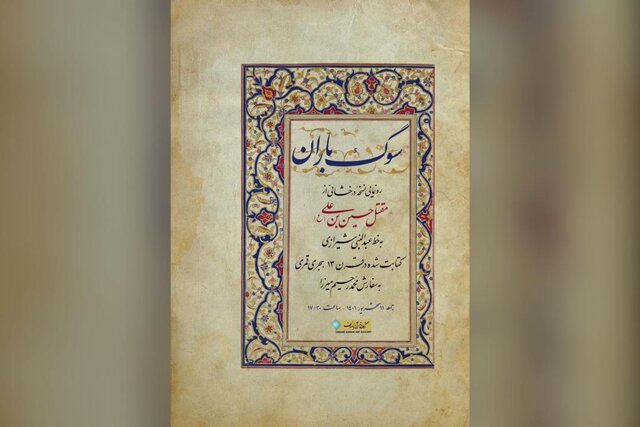 سوگ باران
رونمایی نسخه درخشانی از
مقتل حسین بن علی (ع)
به خط عبدالنبی شیرازی
کتابت شده در قرن ۱۳ هجری قمری
به سفارش محمد رحیم میرزا
جمعه ۱۱ شهریور ۱۴۰۱ . ساعت ۱۷:۳۰